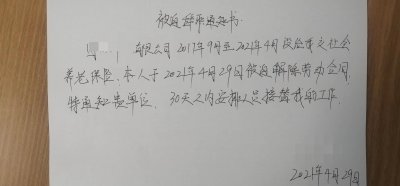 被迫辞职通知书
有限公司2017年9月至2021年4月没给本交社会
养老保险.本人于2021年4月29日被迫解除劳动合同.
特通知贵单位、30天之内安排人员接替我的工作.
2021年4月29日